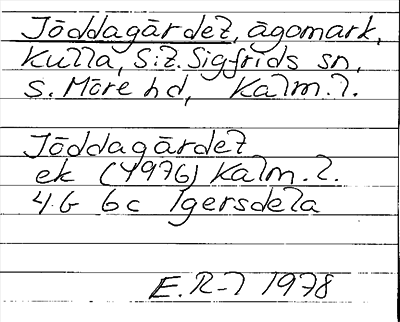 Jöddagärdet, ägomark,
Kulla, S:t Sigfrids sn,
S. Möre hd, Kalm. l.
Jöddagärdet
ek (1976) Kalm. l.
4 G 6 c Igersdela
E. R-l 1978